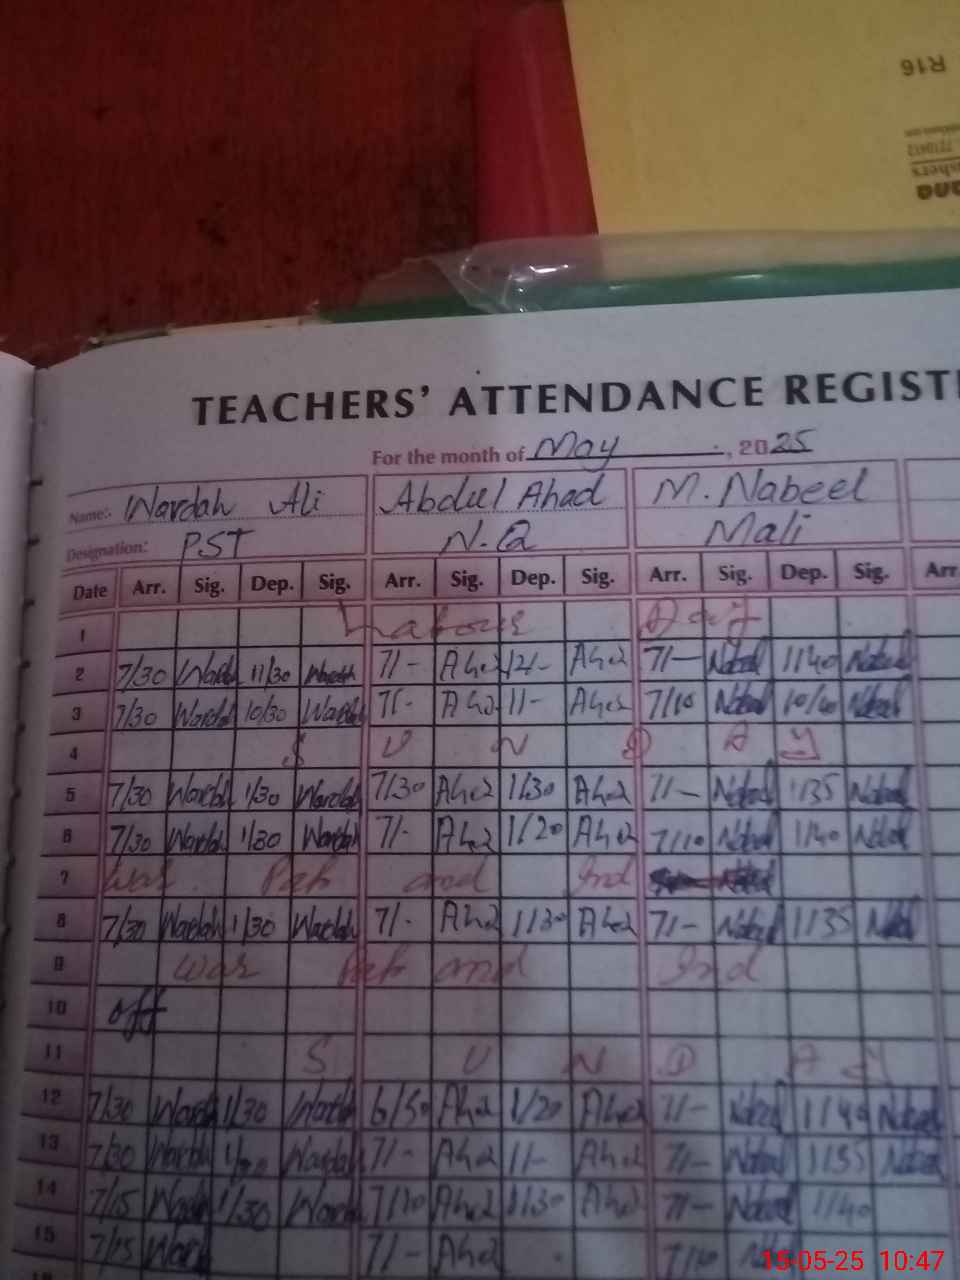 R16
TEACHERS' ATTENDANCE REGIST
For the month of May, 2025
Name: Wardah Ali Abdul Ahad M. Nabeel
Designation: PST N.Q Mali
Date Arr. Sig. Dep. Sig. Arr. Sig. Dep. Sig. Arr. Sig. Dep. Sig. Arr
1 Labour Day
2 7/30 Wardah 11/30 Wardah 7/- Ahad 12/- Ahad 7/- Nabeel 11/40 Nabeel
3 7/30 Wardah 10/30 Wardah 7/- Ahad 11/- Ahad 7/10 Nabeel 10/40 Nabeel
4 S U N D A Y
5 7/30 Wardah 1/30 Wardah 7/30 Ahad 1/30 Ahad 7/- Nabeel 1/35 Nabeel
6 7/30 Wardah 1/30 Wardah 7/- Ahad 1/20 Ahad 7/10 Nabeel 1/40 Nabeel
7 War Pak and Ind
8 7/30 Wardah 1/30 Wardah 7/- Ahad 1/30 Ahad 7/- Nabeel 1/35 Nabeel
9 War Pak and Ind
10 off
11 S U N D A Y
12 7/30 Wardah 1/30 Wardah 6/50 Ahad 1/20 Ahad 7/- Nabeel 1/40 Nabeel
13 7/30 Wardah Wardah 7/- Ahad 1/- Ahad 7/- Nabeel 1/35 Nabeel
14 7/15 Wardah 1/30 Wardah 7/10 Ahad 1/30 Ahad 7/- Nabeel 1/40
15 7/15 Ward 7/- Ahad 7/10
15-05-25 10:47